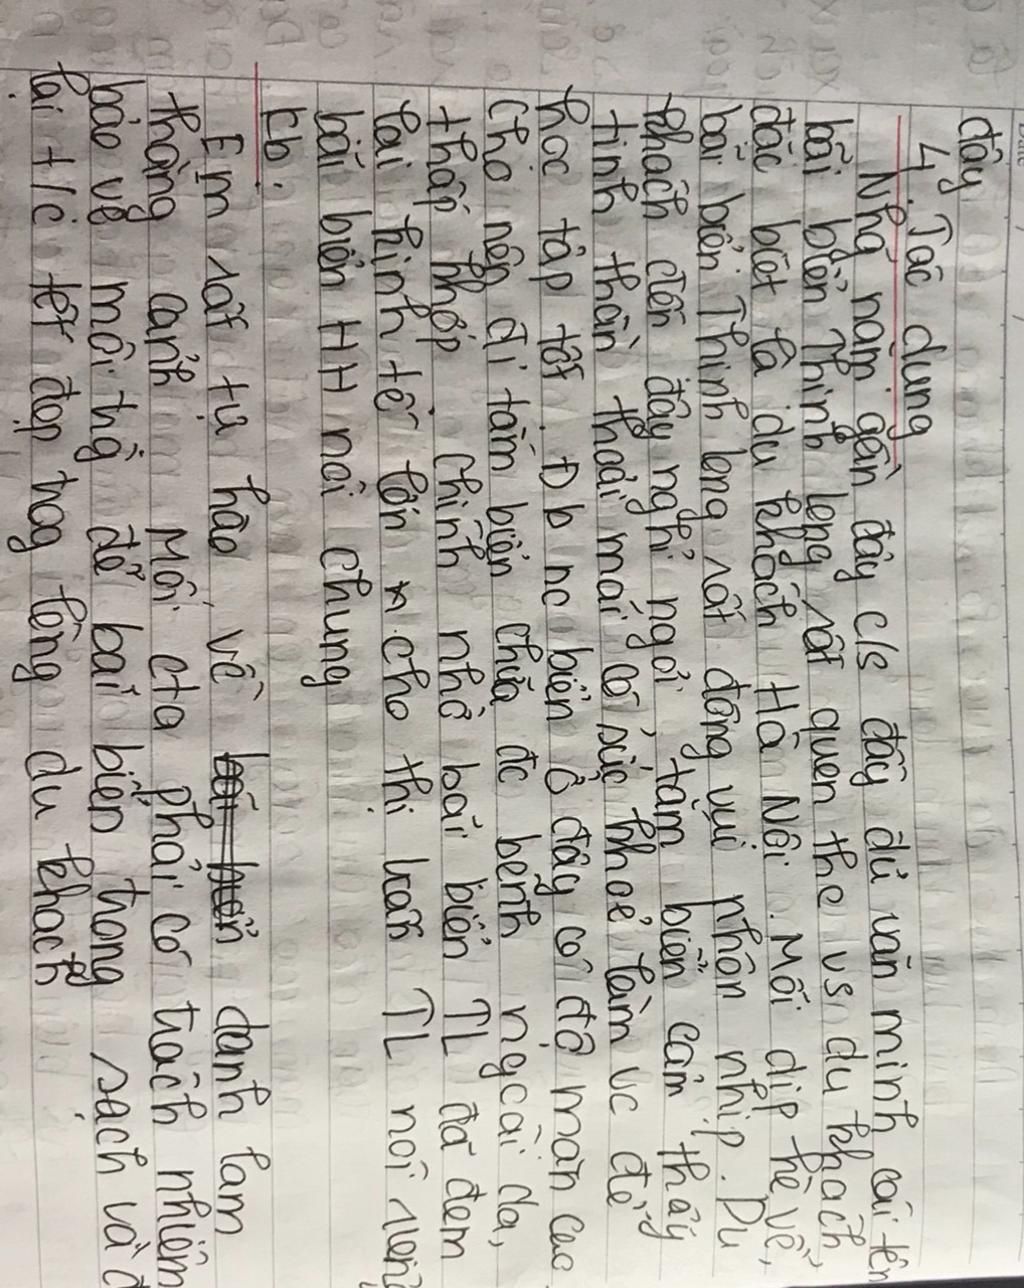 đây
4. Tác dụng
Nhg năm gần đây c/s đầy đủ văn minh cái tên
bãi biển Thịnh Long rất quen thc vs du khách
đặc biệt là du khách Hà Nội. Mỗi dịp hè về,
bãi biển Thịnh Long rất đông vui nhộn nhịp. Du
khách đến đây nghỉ ngơi, tắm biển cảm thấy
tinh thần thoải mái có sức khoẻ làm vc để
học tập tốt. Đb nc biển ở đây có độ mặn cao
Cho nên đi tắm biển chữa đc bệnh ngoài da,
thấp khớp. Chính nhờ bãi biển TL đã đem
lại kinh tế lớn cho thị trấn TL nói riêng
bãi biển HH nói chung
Kb.
Em rất tự hào về danh lam
thắng cảnh Mỗi cta phải có trách nhiệm
bảo vệ môi trg để bãi biển trong sạch và đ
lại t/c tốt đẹp trog lòng du khách